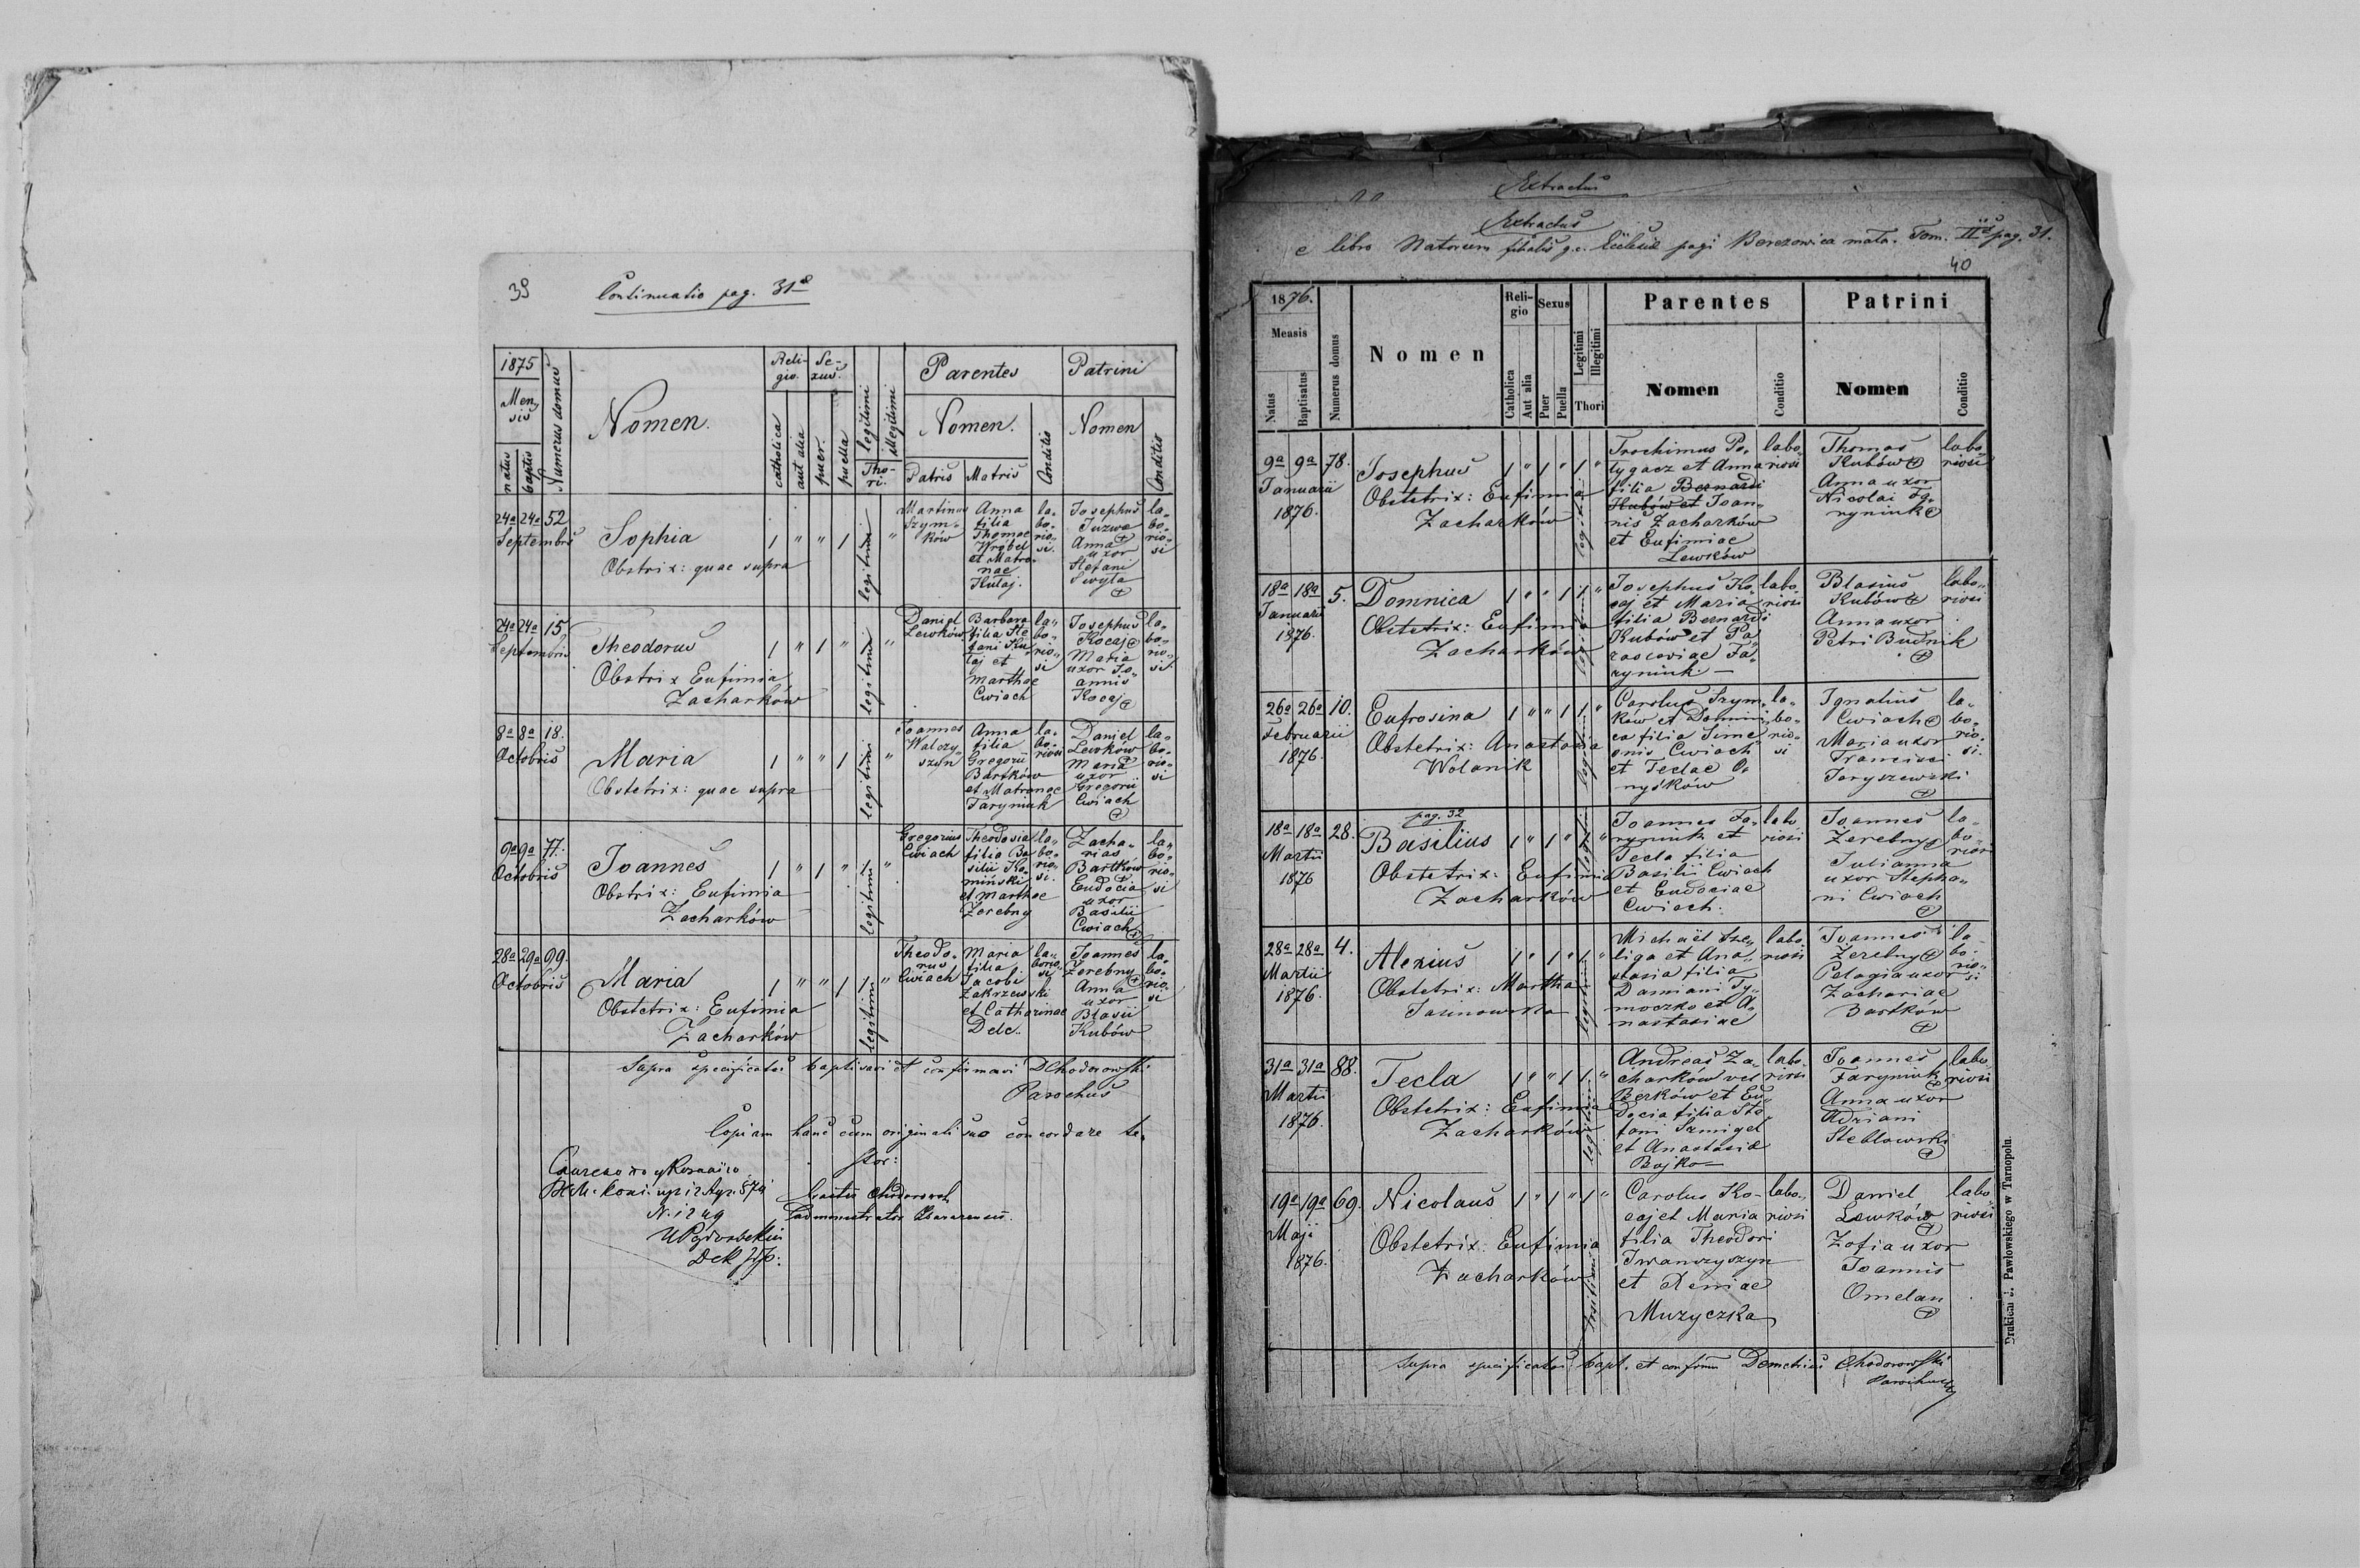 39
Continuatio pag. 31ª
1875
Mensis
natus
baptis
Numerus domus
Nomen.
Religio.
catholica
aut alia
Sexus.
puer.
puella
legitimi
illegitimi
Thori.
Parentes
Nomen.
Patris
Matris
Conditio
Patrini
Nomen
Conditio
24ª 24ª 52
Septembris
Sophia
1 " " 1 legitimi "
Obstrix: quae supra
Martinus
Szym-
ków
Anna
filia
Thomae
Wróbel
et Matro-
nae
Kutaj.
la-
bo-
rio-
si.
Josephus
Juzwa
Anna
uxor
Stefani
Swyta
la-
bo-
rio-
si
24ª 24ª 15
Septembris
Theodorus
1 " 1 " legitimi "
Obstrix Eufimia
Zacharków
Daniel
Lewków
Barbara
filia Ste
fani Ku
taj et
Marthae
Cwiach
la-
bo-
rio-
si
Josephus
Kocaj
Maria
uxor Jo-
annis
Kocaj
la-
bo-
rio-
si.
8ª 8ª 18.
Octobris
Maria
1 " " 1 legitimi "
Obstetrix: quae supra
Joannes
Walczy-
szyn
Anna
filia
Gregorii
Bartków
et Matronae
Faryniuk
la-
bo-
riosi
Daniel
Lewków
Maria
uxor
Gregorii
Cwiach
la-
bo-
rio-
si
9ª 9ª 77.
Octobris
Joannes
1 " 1 " legitimi "
Obstrix: Eufimia
Zacharków
Gregorius
Cwiach
Theodosia
filia Ba
silii Ko-
miński
et Marthae
Zerebny
la-
bo-
rio-
si.
Zacha-
rias
Bartków
Eudocia
uxor
Basilii
Cwiach
la-
bo-
rio-
si
28ª 29ª 99.
Octobris
Maria
1 " " 1 1 legitimi "
Obstetrix: Eufimia
Zacharków
Theodo-
rus
Cwiach
Maria
filia
Jacobi
Zakrzewski
et Catharinae
Delc.
la-
borio-
si
Joannes
Zerebny
Anna
uxor
Blasii
Kubów
la-
bo-
rio-
si
Supra specificatos baptisavi et confirmavi DChodorowski
Parochus
Copiam hanc cum originali suo concordare te-
stor:
N. 1249
Chodorowski
administrator Zbarazensis.
Extractus
Extractus
e libro Natorum filialis g.c. Ecclesiae pagi Berezowica mała. Tom. II pag. 31.
40
1876.
Mensis
Natus
Baptisatus
Numerus domus
Nomen
Religio
Catholica
Aut alia
Sexus
Puer
Puella
Legitimi
Illegitimi
Thori
Parentes
Nomen
Conditio
Patrini
Nomen
Conditio
9ª 9ª 78.
Januarii
1876.
Josephus
1 " 1 " 1 "
Obstetrix: Eufimia
Zacharków
Trochimus Po-
tygacz et Anna
filia Bernardi
Kubów et Joan-
nis Zacharków
et Eufimiae
Lewków
labo-
riosi
Thomas
Kubów
Anna uxor
Nicolai Fa-
ryniuk
labo-
riosi
18ª 18ª 5.
Januarii
1876.
Domnica
1 " " 1 1 "
Obstetrix: Eufimia
Zacharków
Josephus Ko-
caj et Maria
filia Bernardi
Kubów et Pa
rasceviae Fa-
ryniuk.—
labo-
riosi
Blasius
Kubów
Anna uxor
Petri Budnik
labo-
riosi
26ª 26ª 10.
Februarii
1876.
Eufrosina
1 " " 1 1 "
Obstetrix: Anastasia
Wolanik
Carolus Szym-
ków et Domini-
ca filia Sime-
onis Cwiach
et Teclae O-
nyśków
la-
bo-
rio-
si
Ignatius
Cwiach
Maria uxor
Francisci
Jaryszewski
la-
bo-
rio-
si.
pag. 32
18ª 18ª 28.
Martii
1876
Basilius
1 " 1 " "
Obstetrix: Eufimia
Zacharków
Joannes Fa-
ryniuk et
Tecla filia
Basilii Cwiach
et Eudociae
Cwiach.
labo
riosi
Joannes
Zerebnyj
Julianna
uxor Stepha-
ni Cwiach
la-
bo-
riosi
28ª 28ª 4.
Martii
1876.
Alexius
1 " 1 " 1 "
Obstetrix: Martha
Jasinowska
Michael Sze-
liga et Ana-
stasia filia
Damiani Ty-
moczko et A-
nastasiae
labo-
riosi
Joannes
Zerebny
Pelagia uxor
Zachariae
Bartków
la-
bo-
rio-
si
31ª 31ª 88.
Martii
1876.
Tecla
1 " " 1 1 "
Obstetrix: Eufimia
Zacharków
Andreas Za-
charków vel
Berków et Eu-
docia filia Ste
fani Szmigel
et Anastasiae
Bojko—
labo-
riosi
Joannes
Faryniuk
Anna uxor
Adriani
Steblowski
labo-
riosi
19ª 19ª 69.
Maji
1876.
Nicolaus
1 " 1 " 1 "
Obstetrix: Eufimia
Zacharków
Carolus Ko-
caj et Maria
filia Theodori
Iwanczyszyn
et Xeniae
Muzyczka
labo-
riosi
Daniel
Lewków
Zofia uxor
Joannis
Omelan
labo-
riosi
Supra specificatos bapt. et confirm Demetrius Chodorowski
Parochus
Drukiem J. Pawłowskiego w Tarnopolu.